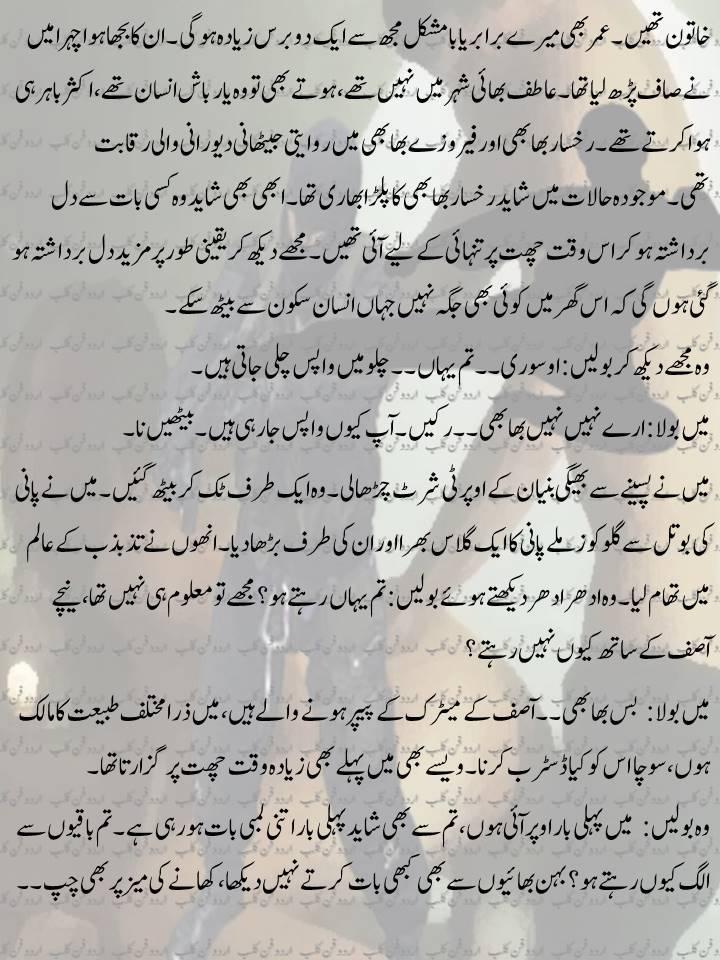 خاتون تھیں۔ عمر بھی میرے برابر یا بامشکل مجھ سے ایک دو برس زیادہ ہو گی۔ ان کا بجھا ہوا چہرا میں
نے صاف پڑھ لیا تھا۔ عاطف بھائی شہر میں نہیں تھے، ہوتے بھی تو وہ یار باش انسان تھے، اکثر باہر ہی
ہوا کرتے تھے۔ رخسار بھابھی اور فیروزے بھابھی میں روایتی جیٹھانی دیورانی والی رقابت
تھی۔ موجودہ حالات میں شاید رخسار بھابھی کا پلڑا بھاری تھا۔ ابھی بھی شاید وہ کسی بات سے دل
برداشتہ ہو کر اس وقت چھت پر تنہائی کے لیے آئی تھیں۔ مجھے دیکھ کر یقینی طور پر مزید دل برداشتہ ہو
گئی ہوں گی کہ اس گھر میں کوئی بھی جگہ نہیں جہاں انسان سکون سے بیٹھ سکے۔
وہ مجھے دیکھ کر بولیں: او سوری۔۔ تم یہاں۔۔ چلو میں واپس چلی جاتی ہیں۔
میں بولا: ارے نہیں نہیں بھابھی۔۔ رکیں۔ آپ کیوں واپس جا رہی ہیں۔ بیٹھیں نا۔
میں نے پسینے سے بھیگی بنیان کے اوپر ٹی شرٹ چڑھا لی۔ وہ ایک طرف ٹک کر بیٹھ گئیں۔ میں نے پانی
کی بوتل سے گلوکوز ملے پانی کا ایک گلاس بھرا اور ان کی طرف بڑھا دیا۔ انھوں نے تذبذب کے عالم
میں تھام لیا۔ وہ ادھر ادھر دیکھتے ہوئے بولیں: تم یہاں رہتے ہو؟ مجھے تو معلوم ہی نہیں تھا، نیچے
آصف کے ساتھ کیوں نہیں رہتے؟
میں بولا: بس بھابھی۔۔ آصف کے میٹرک کے پیپر ہونے والے ہیں، میں ذرا مختلف طبیعت کا مالک
ہوں، سوچا اس کو کیا ڈسٹرب کرنا۔ ویسے بھی میں پہلے بھی زیادہ وقت چھت پر گزارتا تھا۔
وہ بولیں: میں پہلی بار اوپر آئی ہوں، تم سے بھی شاید پہلی بار اتنی لمبی بات ہو رہی ہے۔ تم باقیوں سے
الگ کیوں رہتے ہو؟ بہن بھائیوں سے بھی کبھی بات کرتے نہیں دیکھا، کھانے کی میز پر بھی چپ۔۔